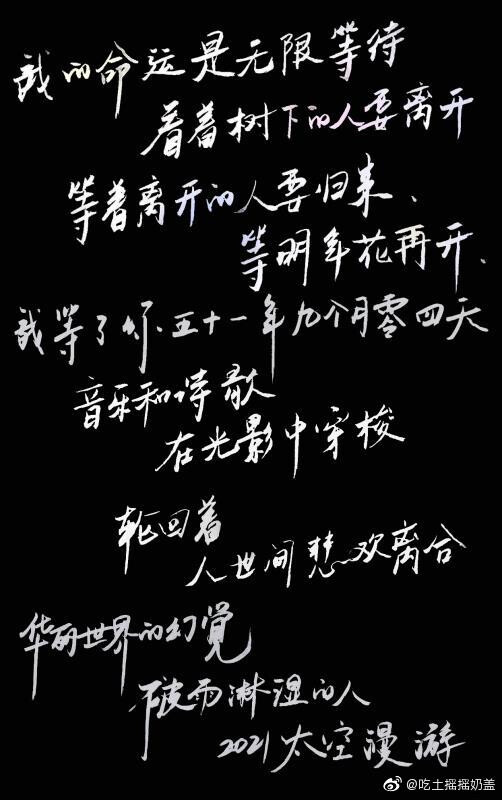 我的命运是无限等待
看着树下的人要离开
等着离开的人要归来、
等明年花再开、
我等了你、五十一年九个月零四天
音乐和诗歌
在光影中穿梭
轮回着
人世间悲欢离合
华丽世界的幻觉
不被雨淋湿的人
2021太空漫游
@吃土摇摇奶盖